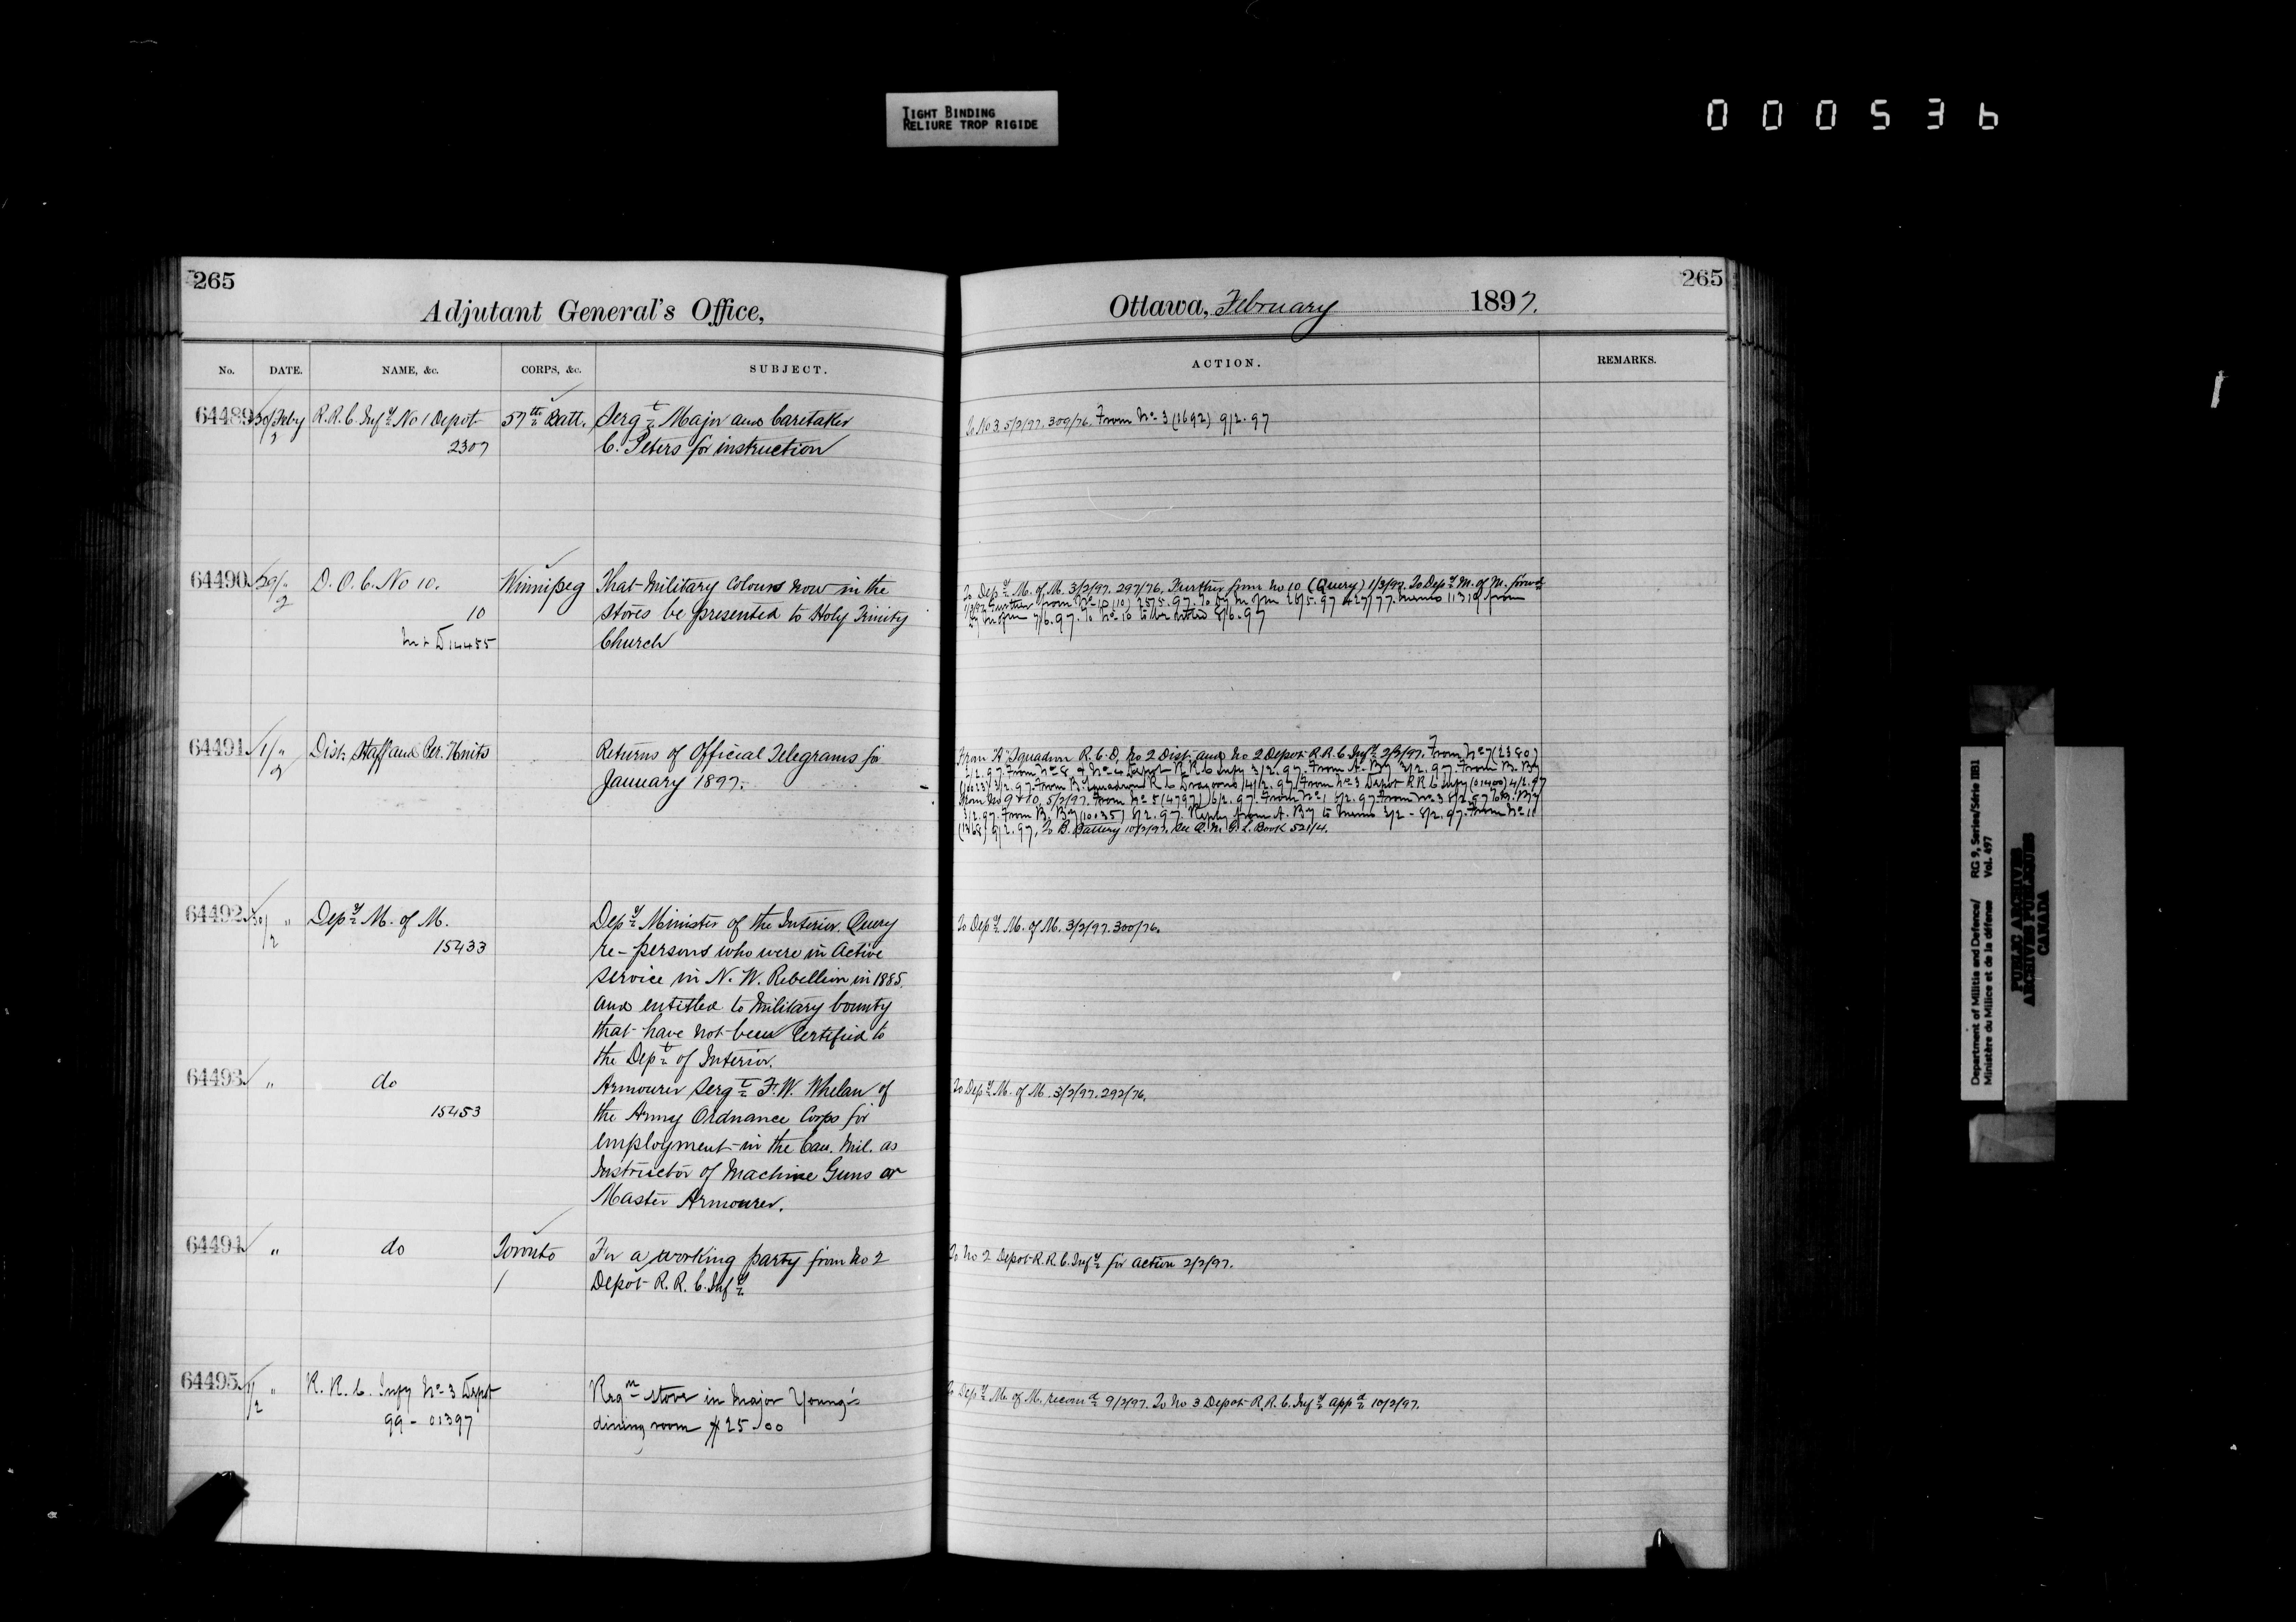 TIGHT BINDING
RELIURE TROP RIGIDE
000536
265
Adjutant General's Office,
No. DATE. NAME, &c. CORPS, &c. SUBJECT.
64489 30/2 Feby R.R.C. Infy No 1 Depot 57th Batt. Sergt Major and Caretaker
2307 C. Peters for instruction
64490 30/2 " D.O.C. No 10. Winnipeg That Military Colours now in the
10 stores be presented to Holy Trinity
M & D 14455 Church
64491 1/2 " Dist. Staff and Per. Units Returns of Official Telegrams for
January 1897.
64492 30/2 " Depy M. of M. Depy Minister of the Interior. Query
15433 re-persons who were in Active
service in N.W. Rebellion in 1885
and entitled to Military bounty
that have not been Certified to
the Dept of Interior.
64493 " do Armourer Sergt F.W. Whelan of
15453 the Army Ordnance Corps for
employment in the Can. Mil. as
Instructor of Machine Guns or
Master Armourer.
64494 " do Toronto For a working party from No 2
1 Depot R.R.C. Infy
64495 1/2 " R.R.C. Infy No 3 Depot Reqn stove in Major Young's
99-01397 dining room $25.00
265
Ottawa, February 1897.
ACTION. REMARKS.
To No 3. 5/2/97. 309/76. From No 3 (1692) 9/2.97
To Depy M. of M. 3/2/97. 297/76, Further from No 10 (Query) 1/3/97. To Depy M. of M. forwd
1/3/97 Further from No 10 (10) 25/5.97. To Dy M of M 28/5.97 427/77. Memo 11310 from
Dy M of M 7/6.97. To No 10 to be noted 8/6.97
From "A" Squadron R.C.D, No 2 Dist. and No 2 Depot R.R.C. Infy 2/2/97. From No 7 (2380)
2/2.97. From No 8 & No 4 Depot R.R.C Infy 3/2.97. From A. By 3/2.97. From B. By
3/2.97. From B. Squadron R C Dragoons 4/2.97. From No 3 Depot R R C Infy (01400) 4/2.97
From No 9 & 10, 5/2/97. From No 5 (4797) 6/2.97. From No 1 8/2.97. From No 3 8/2.97
8/2.97. From B. By (10035) 8/2.97. Reply from A. By to memo 3/2 - 8/2.97. From No 11
9/2.97, To B. Battery 10/2/97. See Q.M.G. L. Book 521/4.
To Depy M. of M. 3/2/97. 300/76.
To Depy M. of M. 3/2/97. 292/76.
To No 2 Depot R.R.C. Infy for action 2/2/97.
To Depy M. of M. recomd 9/2/97. To No 3 Depot R.R.C. Infy appd 10/2/97.
Department of Militia and Defence/ RG 9, Series/Série IIB1
Ministère du Milice et de la défense Vol. 497
PUBLIC ARCHIVES
ARCHIVES PUBLIQUES
CANADA